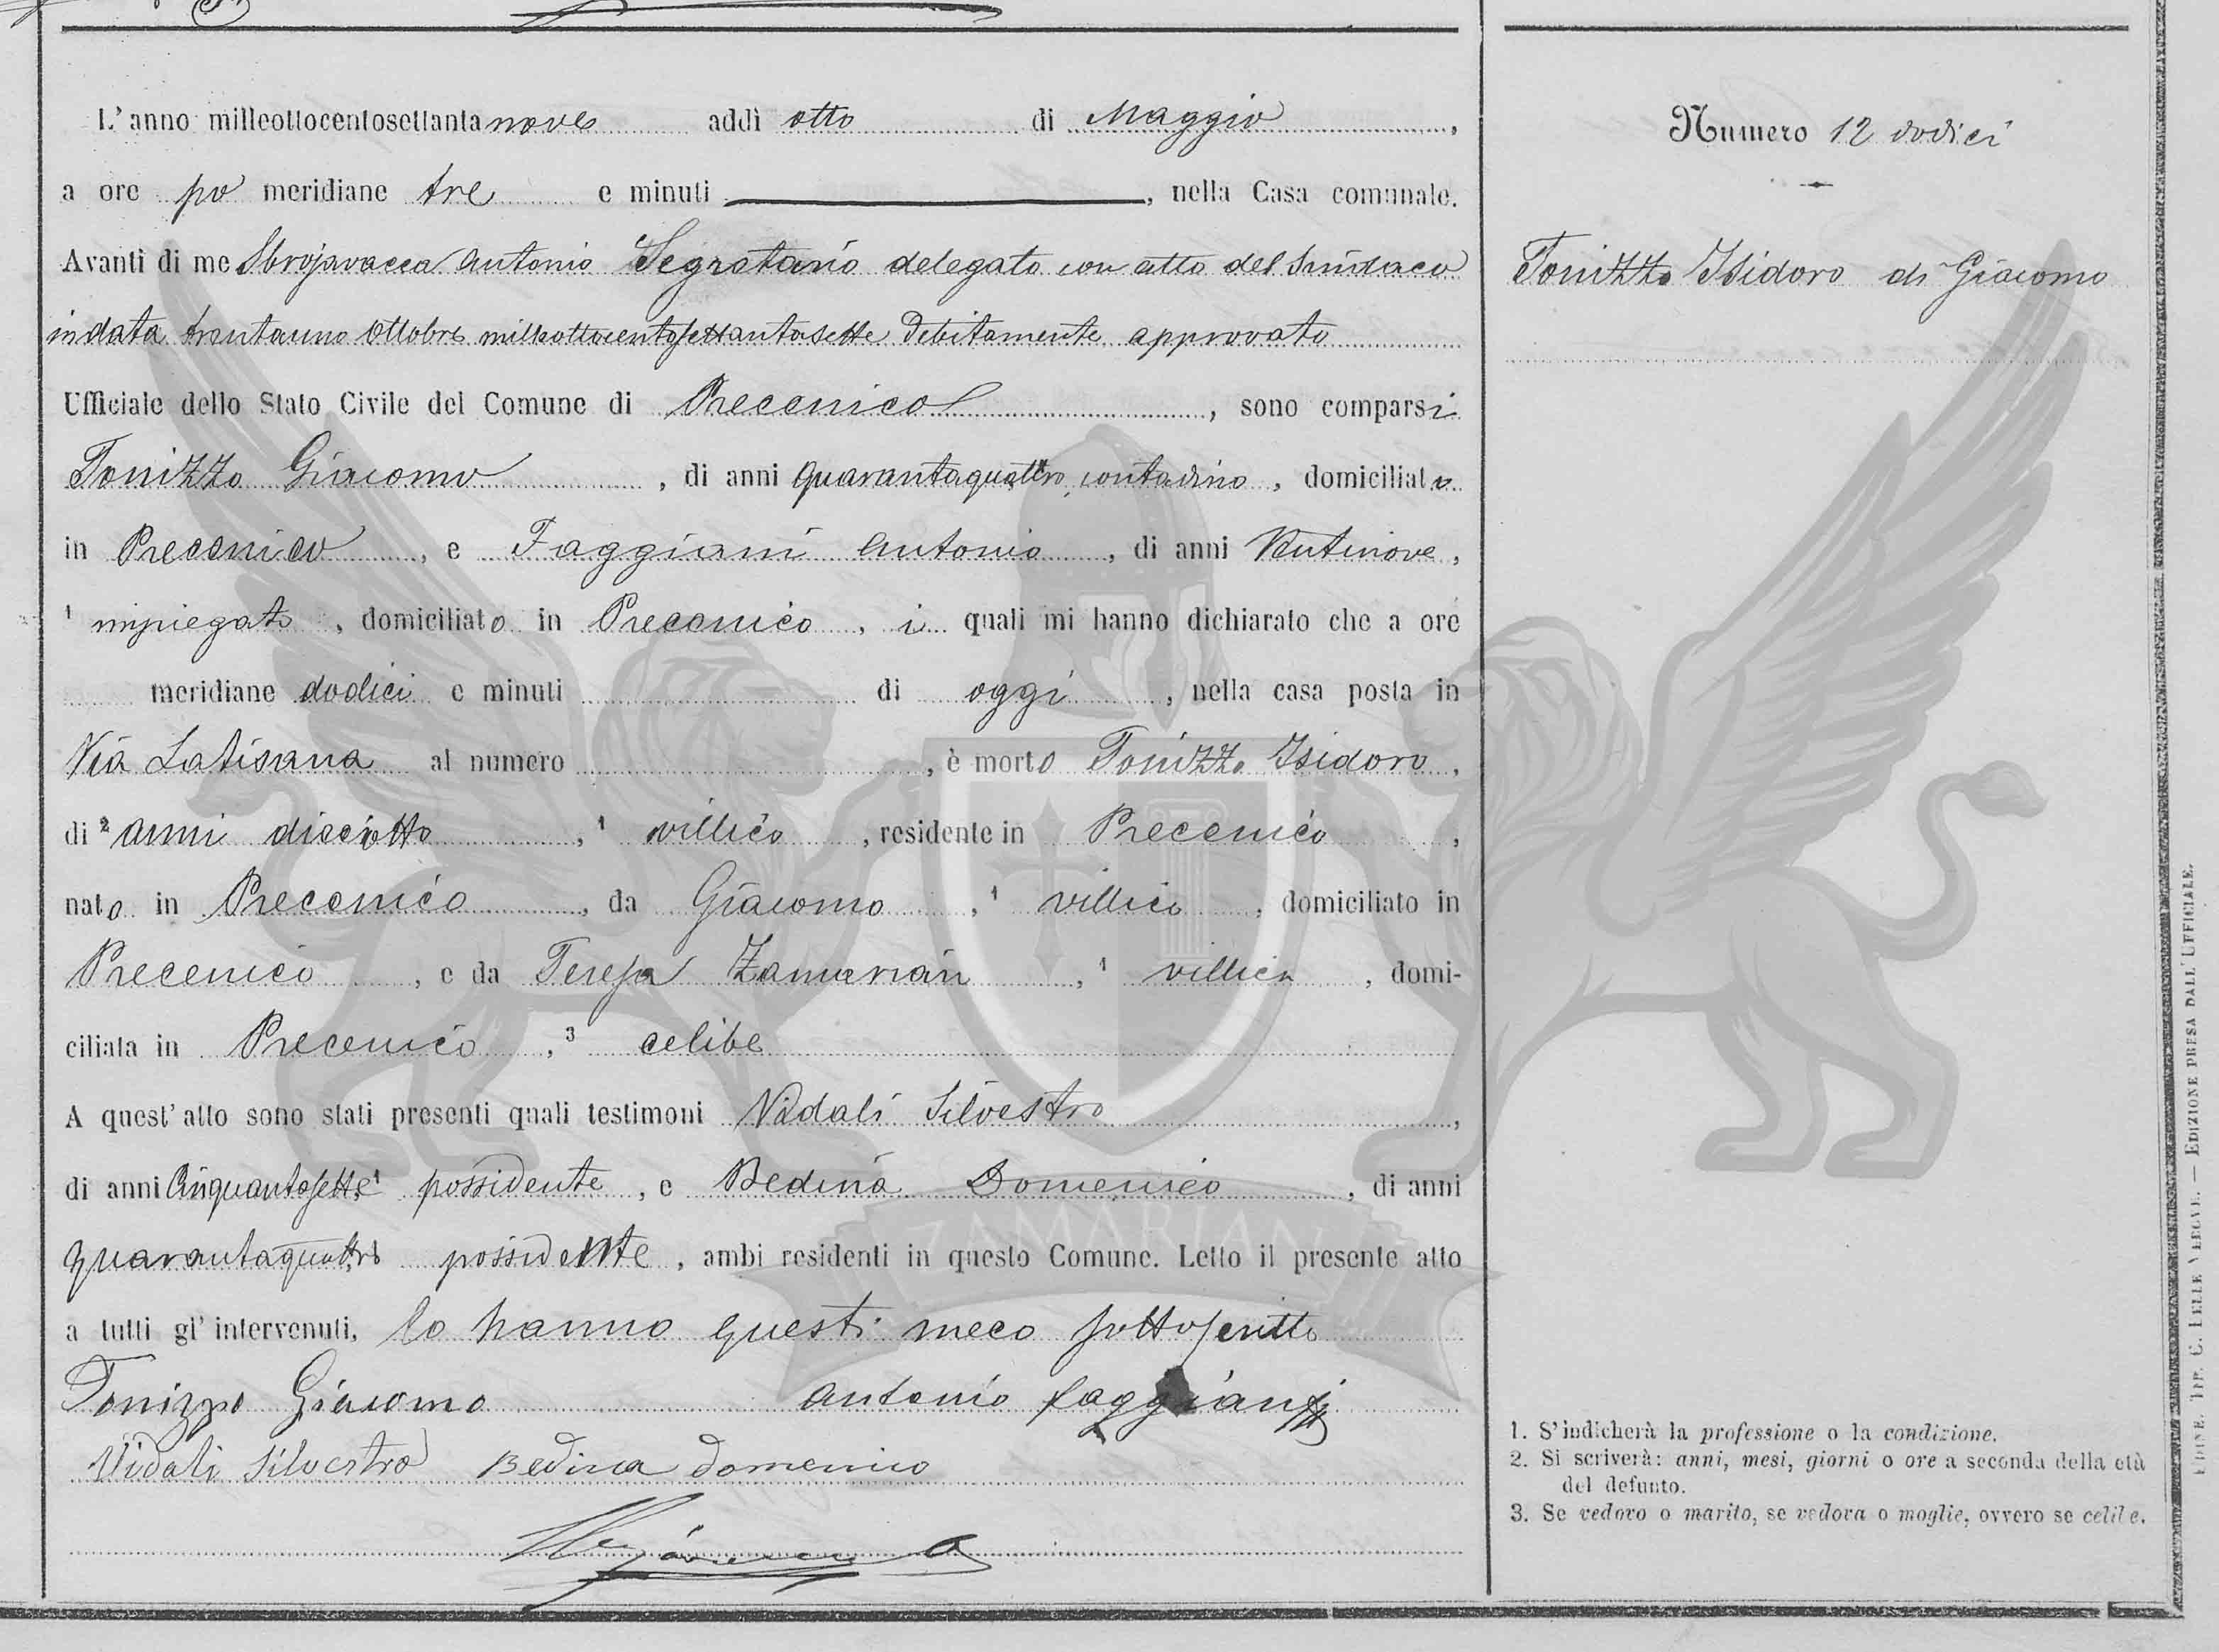 L'anno milleottocentosettantanove addì otto di Maggio,
a ore po meridiane tre e minuti, nella Casa comunale.
Avanti di me Sbrojavacca Antonio Segretario delegato con atto del Sindaco
in data trentauno Ottobre milleottocentosettantasette debitamente approvato
Ufficiale dello Stato Civile del Comune di Precenico, sono comparsi
Tonizzo Giacomo, di anni quarantaquattro, contadino, domiciliato
in Precenico, e Faggiani Antonio, di anni Ventinove,
1 impiegato, domiciliato in Precenico, i quali mi hanno dichiarato che a ore
meridiane dodici e minuti di oggi, nella casa posta in
Via Latisana al numero, è morto Tonizzo Isidoro,
di 2 anni dieciotto, 1 villico, residente in Precenico,
nato in Precenico, da Giacomo, 1 villico, domiciliato in
Precenico, e da Teresa Zamarian, 1 villica, domi-
ciliata in Precenico, 3 celibe
A quest'atto sono stati presenti quali testimoni Vidali Silvestro,
di anni Cinquantasette 1 possidente, e Bedina Domenico, di anni
quarantaquattro possidente, ambi residenti in questo Comune. Letto il presente atto
a tutti gl'intervenuti, lo hanno questi meco sottoscritto
Tonizzo Giacomo Antonio Faggiani
Vidali Silvestro Bedina Domenico
Numero 12 dodici
Tonizzo Isidoro di Giacomo
1. S'indicherà la professione o la condizione.
2. Si scriverà: anni, mesi, giorni o ore a seconda della età
del defunto.
3. Se vedovo o marito, se vedova o moglie, ovvero se celibe.
UDINE. TIP. C. DELLE VEDOVE. — EDIZIONE PRESA DALL'UFFICIALE.
ZAMARIAN